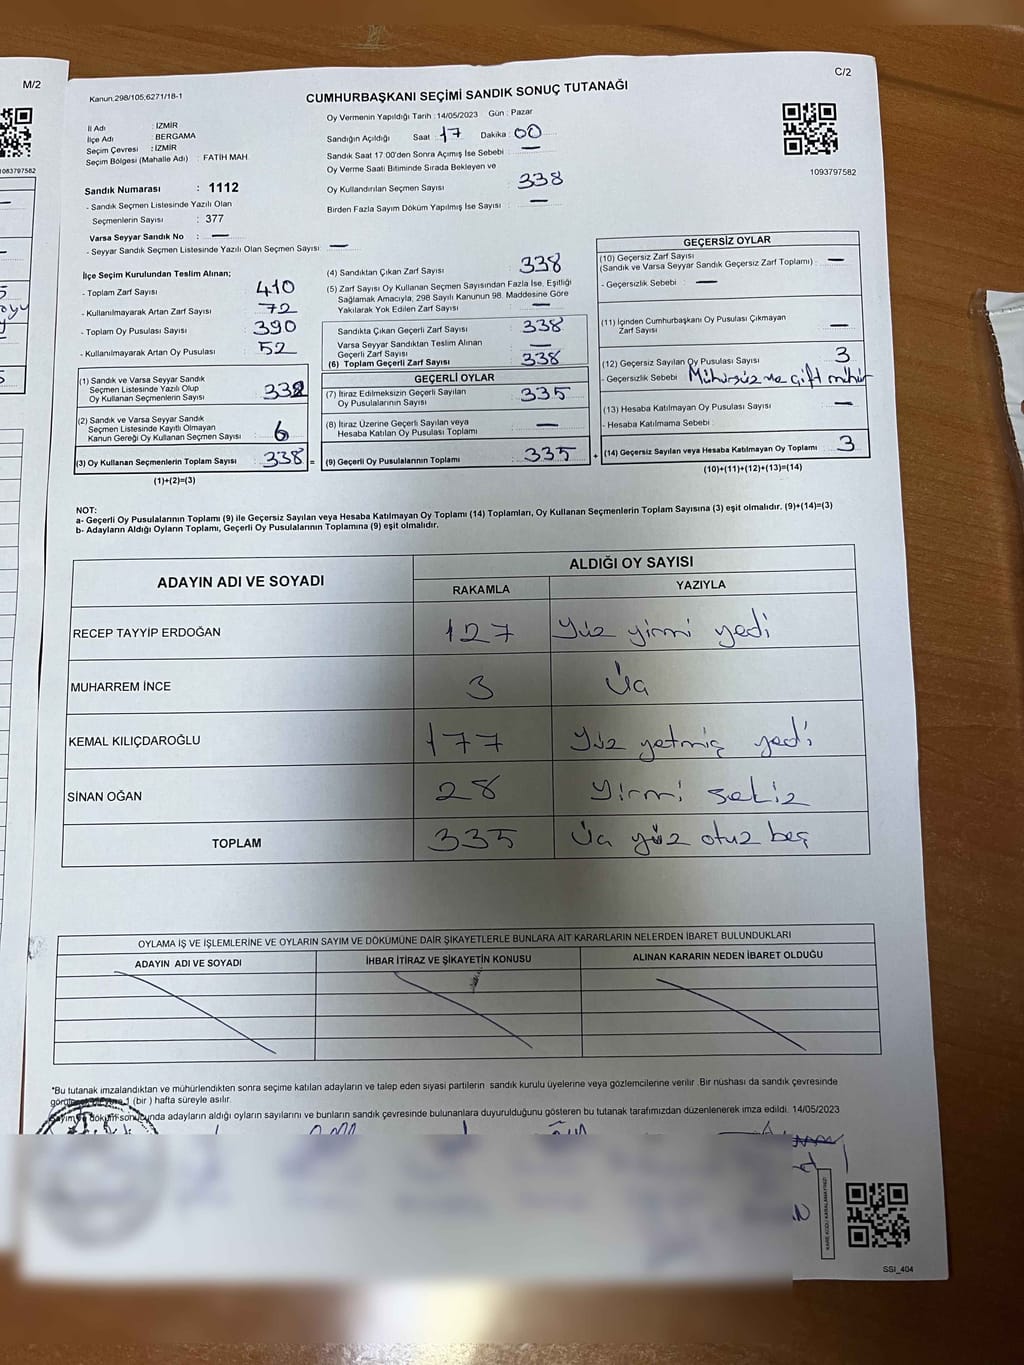 M/2
C/2
Kanun.298/105,6271/18-1
CUMHURBAŞKANI SEÇİMİ SANDIK SONUÇ TUTANAĞI
1093797582
İl Adı : İZMİR
İlçe Adı : BERGAMA
Seçim Çevresi : İZMİR
Seçim Bölgesi (Mahalle Adı) : FATİH MAH.
Sandık Numarası : 1112
- Sandık Seçmen Listesinde Yazılı Olan
Seçmenlerin Sayısı : 377
Varsa Seyyar Sandık No : —
- Seyyar Sandık Seçmen Listesinde Yazılı Olan Seçmen Sayısı : —
Oy Vermenin Yapıldığı Tarih :14/05/2023 Gün : Pazar
Sandığın Açıldığı Saat : 17 Dakika : 00
Sandık Saat 17:00'den Sonra Açımış İse Sebebi : —
Oy Verme Saati Bitiminde Sırada Bekleyen ve
Oy Kullandırılan Seçmen Sayısı : 338
Birden Fazla Sayım Döküm Yapılmış İse Sayısı : —
İlçe Seçim Kurulundan Teslim Alınan;
- Toplam Zarf Sayısı : 410
- Kullanılmayarak Artan Zarf Sayısı : 72
- Toplam Oy Pusulası Sayısı : 390
- Kullanılmayarak Artan Oy Pusulası : 52
(1) Sandık ve Varsa Seyyar Sandık
Seçmen Listesinde Yazılı Olup
Oy Kullanan Seçmenlerin Sayısı : 332
(2) Sandık ve Varsa Seyyar Sandık
Seçmen Listesinde Kayıtlı Olmayan
Kanun Gereği Oy Kullanan Seçmen Sayısı : 6
(3) Oy Kullanan Seçmenlerin Toplam Sayısı : 338 =
(1)+(2)=(3)
(4) Sandıktan Çıkan Zarf Sayısı : 338
(5) Zarf Sayısı Oy Kullanan Seçmen Sayısından Fazla İse, Eşitliği
Sağlamak Amacıyla, 298 Sayılı Kanunun 98. Maddesine Göre
Yakılarak Yok Edilen Zarf Sayısı : —
Sandıkta Çıkan Geçerli Zarf Sayısı : 338
Varsa Seyyar Sandıktan Teslim Alınan
Geçerli Zarf Sayısı : —
(6) Toplam Geçerli Zarf Sayısı : 338
GEÇERLİ OYLAR
(7) İtiraz Edilmeksizin Geçerli Sayılan
Oy Pusulalarının Sayısı : 335
(8) İtiraz Üzerine Geçerli Sayılan veya
Hesaba Katılan Oy Pusulası Toplamı : —
(9) Geçerli Oy Pusulalarının Toplamı : 335 +
GEÇERSİZ OYLAR
(10) Geçersiz Zarf Sayısı
(Sandık ve Varsa Seyyar Sandık Geçersiz Zarf Toplamı) : —
- Geçersizlik Sebebi : —
(11) İçinden Cumhurbaşkanı Oy Pusulası Çıkmayan
Zarf Sayısı : —
(12) Geçersiz Sayılan Oy Pusulası Sayısı : 3
- Geçersizlik Sebebi : Mühürsüz ve çift mühür
(13) Hesaba Katılmayan Oy Pusulası Sayısı : —
- Hesaba Katılmama Sebebi :
(14) Geçersiz Sayılan veya Hesaba Katılmayan Oy Toplamı : 3
(10)+(11)+(12)+(13)=(14)
NOT:
a- Geçerli Oy Pusulalarının Toplamı (9) ile Geçersiz Sayılan veya Hesaba Katılmayan Oy Toplamı (14) Toplamları, Oy Kullanan Seçmenlerin Toplam Sayısına (3) eşit olmalıdır. (9)+(14)=(3)
b- Adayların Aldığı Oyların Toplamı, Geçerli Oy Pusulalarının Toplamına (9) eşit olmalıdır.
ADAYIN ADI VE SOYADI ALDIĞI OY SAYISI
RAKAMLA YAZIYLA
RECEP TAYYİP ERDOĞAN 127 Yüz yirmi yedi
MUHARREM İNCE 3 Üç
KEMAL KILIÇDAROĞLU 177 Yüz yetmiş yedi
SİNAN OĞAN 28 Yirmi sekiz
TOPLAM 335 Üç yüz otuz beş
OYLAMA İŞ VE İŞLEMLERİNE VE OYLARIN SAYIM VE DÖKÜMÜNE DAİR ŞİKAYETLERLE BUNLARA AİT KARARLARIN NELERDEN İBARET BULUNDUKLARI
ADAYIN ADI VE SOYADI İHBAR İTİRAZ VE ŞİKAYETİN KONUSU ALINAN KARARIN NEDEN İBARET OLDUĞU
*Bu tutanak imzalandıktan ve mühürlendikten sonra seçime katılan adayların ve talep eden siyasi partilerin sandık kurulu üyelerine veya gözlemcilerine verilir .Bir nüshası da sandık çevresinde
1 (bir ) hafta süreyle asılır.
adayların aldığı oyların sayılarını ve bunların sandık çevresinde bulunanlara duyurulduğunu gösteren bu tutanak tarafımızdan düzenlenerek imza edildi. 14/05/2023
SSI_404